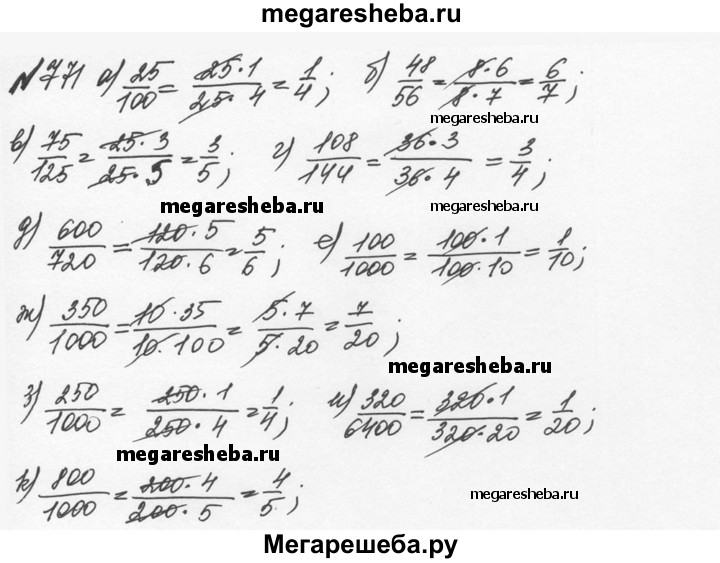 megaresheba.ru
№771 а) 25/100 = 25·1/25·4 = 1/4; б) 48/56 = 8·6/8·7 = 6/7;
megaresheba.ru
в) 75/125 = 25·3/25·5 = 3/5; г) 108/144 = 36·3/36·4 = 3/4;
megaresheba.ru megaresheba.ru
д) 600/720 = 120·5/120·6 = 5/6; е) 100/1000 = 100·1/100·10 = 1/10;
megaresheba.ru
ж) 350/1000 = 10·35/10·100 = 5·7/5·20 = 7/20;
megaresheba.ru
з) 250/1000 = 250·1/250·4 = 1/4; и) 320/6400 = 320·1/320·20 = 1/20;
megaresheba.ru
к) 800/1000 = 200·4/200·5 = 4/5;
megaresheba.ru
Мегарешеба.ру